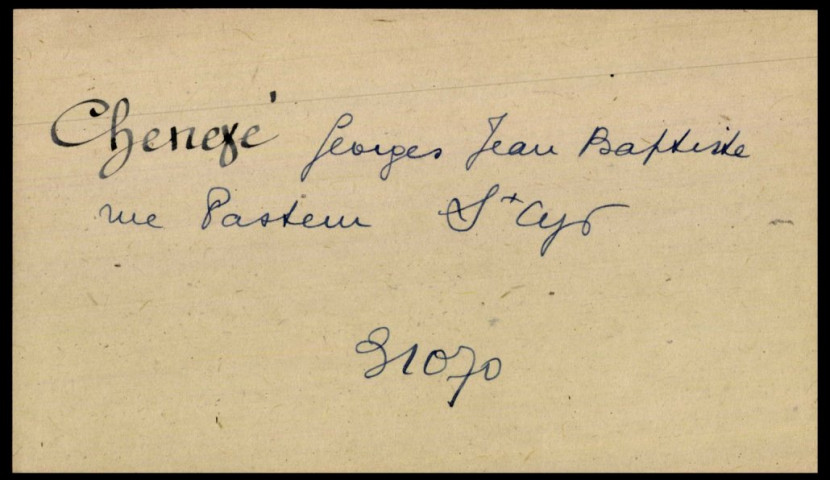 Chenefé Georges Jean Baptiste
rue Pasteur St Cyr
91070